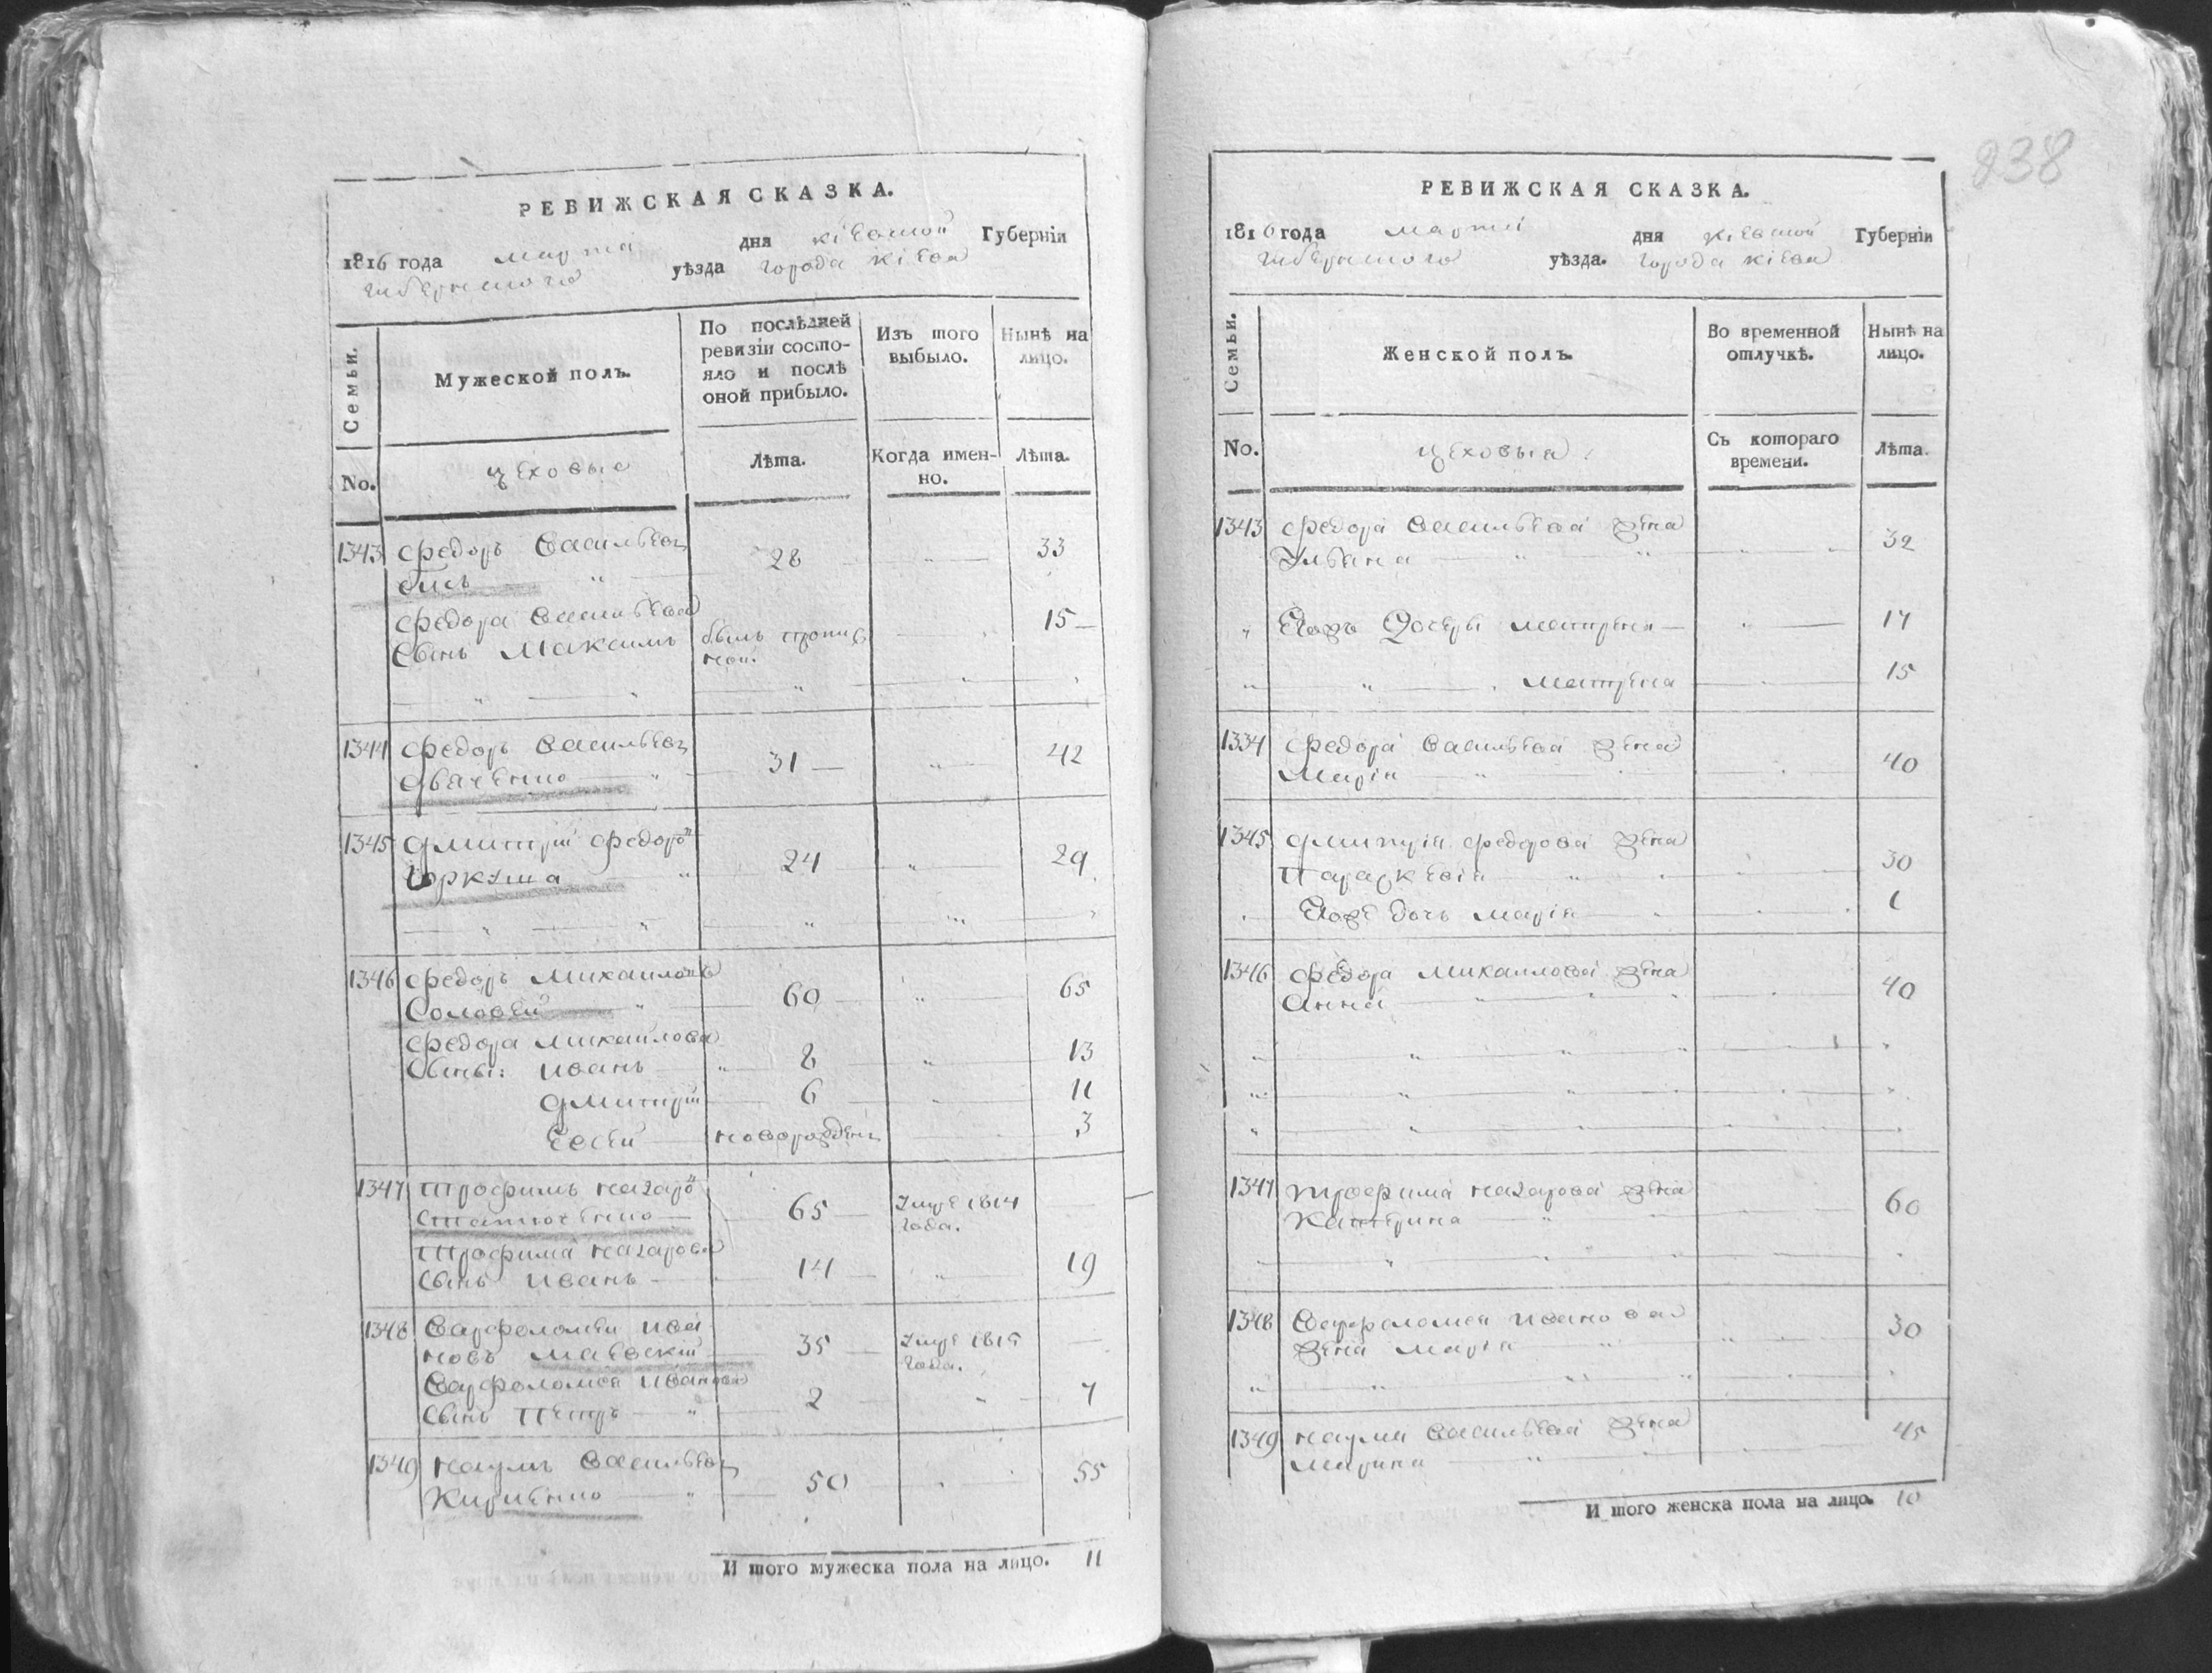 РЕВИЖСКАЯ СКАЗКА.
1816 года марта дня кіевской Губерніи
губернского уѣзда города кіева
Семьи.
Мужеской полъ.
По послѣдней
ревизіи состо-
яло и послѣ
оной прибыло.
Изъ того
выбыло.
Нынѣ на
лицо.
No.
цеховые
Лѣта.
Когда имен-
но.
Лѣта.
1343 Федоръ Васильевъ 28 33
Федора Васильева 15
Сынъ Максимъ былъ пропис
ной.
1344 Федоръ Васильевъ 31 42
Дяченко
1345 Дмитрій Федоро 24 29
1346 Федоръ Михаиловъ 60 65
Соловей
Федора Михайлова
Сыны: Иванъ 8 13
Дмитрій 6 11
Евсей новорожденъ 3
1347 Трофимъ Назаро 65 умре 1814
года.
Трофима Назарова
Сынъ Иванъ 14 19
1348 Варфоломей Ива 35 умре 1815
новъ Маевскій года.
Варфоломея Иванова
Сынъ Петръ 2 7
1349 Наумъ Васильевъ 50 55
Кириенко
И того мужеска пола на лицо. 11
838
РЕВИЖСКАЯ СКАЗКА.
1816 года марта дня кіевской Губерніи
губернского уѣзда. города кіева
Семьи.
Женской полъ.
Во временной
отлучкѣ.
Нынѣ на
лицо.
No.
цеховыя
Съ котораго
времени.
Лѣта.
1343 Федора Васильева жена 32
Ульяна
Егожъ Дочери матрена 17
матрена 15
1334 Федора Васильева жена 40
Марія
1345 Дмитрія Федорова жена 30
Параскевія
Егоже дочь марія 1
1346 Федора Михаилова жена 40
Анна
1347 Трофима Назарова жена 60
Катерина
1348 Варфоломея Иванова 30
жена Марія
1349 Наума Васильева жена 45
Марина
И того женска пола на лицо. 10